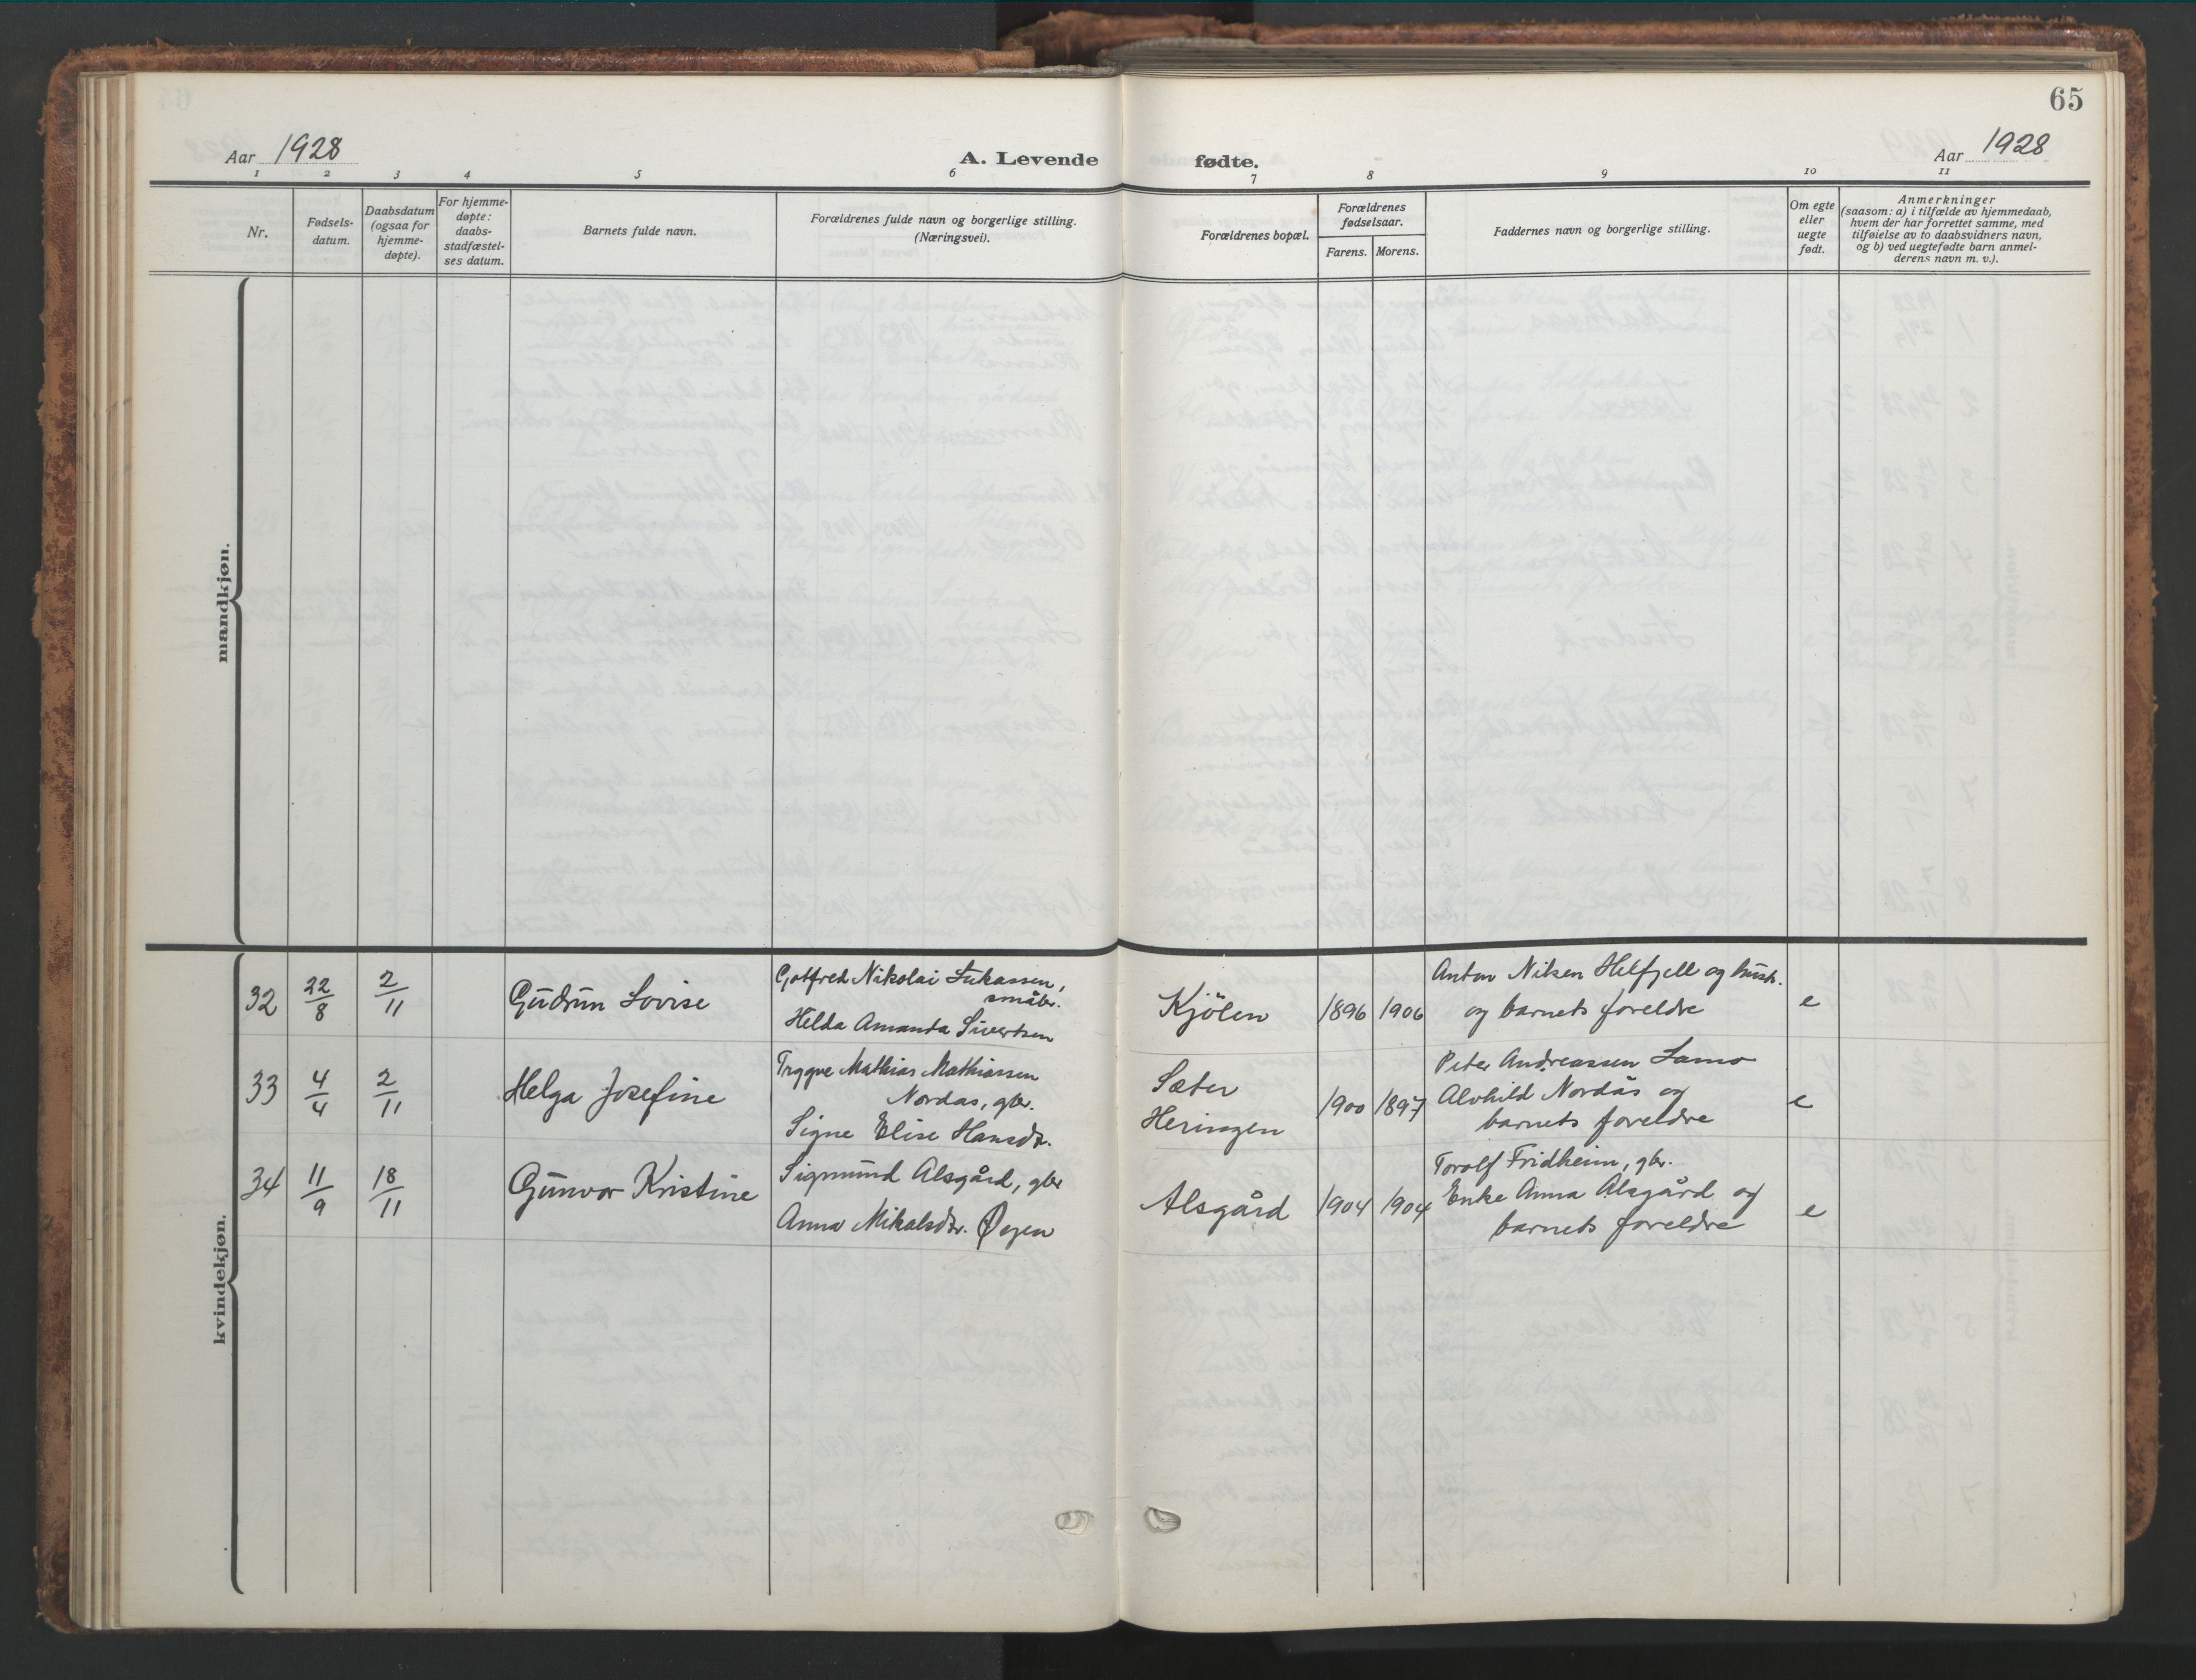 65
Aar 1928
A. Levende fødte.
Aar 1928
1 2 3 4 5 6 7 8 9 10 11
Nr.
Fødsels-
datum.
Daabsdatum
(ogsaa for
hjemme-
døpte).
For hjemme-
døpte:
daabs-
stadfæstel-
ses datum.
Barnets fulde navn.
Forældrenes fulde navn og borgerlige stilling.
(Næringsvei).
Forældrenes bopæl.
Forældrenes
fødselsaar.
Farens. Morens.
Faddernes navn og borgerlige stilling.
Om egte
eller
uegte
født.
Anmerkninger
(saasom: a) i tilfælde av hjemmedaab,
hvem der har forrettet samme, med
tilføielse av to daabsvidners navn,
og b) ved uegtefødte barn anmel-
derens navn m. v.).
mandkjøn.
kvindekjøn.
32 22/8 2/11 Gudrun Lovise
Gotfred Nikolai Lukassen,
småbr.
Hilda Amanda Sivertsen
Kjölen 1896 1906
Anton Nilsen Helfjell og hustr.
og barnets foreldre
e
33 4/4 2/11 Helga Josefine
Trygve Mathias Mathiassen
Nordas, gbr.
Signe Elise Hansdr.
Sæter
Heringen
1900 1897
Peter Andreassen Lamo
Alvhild Nordås og
barnets foreldre
e
34 11/9 18/11 Gunvor Kristine
Sigmund Alsgård, gbr
Anna Mikalsdtr. Øyen
Alsgård 1904 1904
Torolf Fridheim, gbr.
Enke Anna Alsgård og
barnets foreldre
e